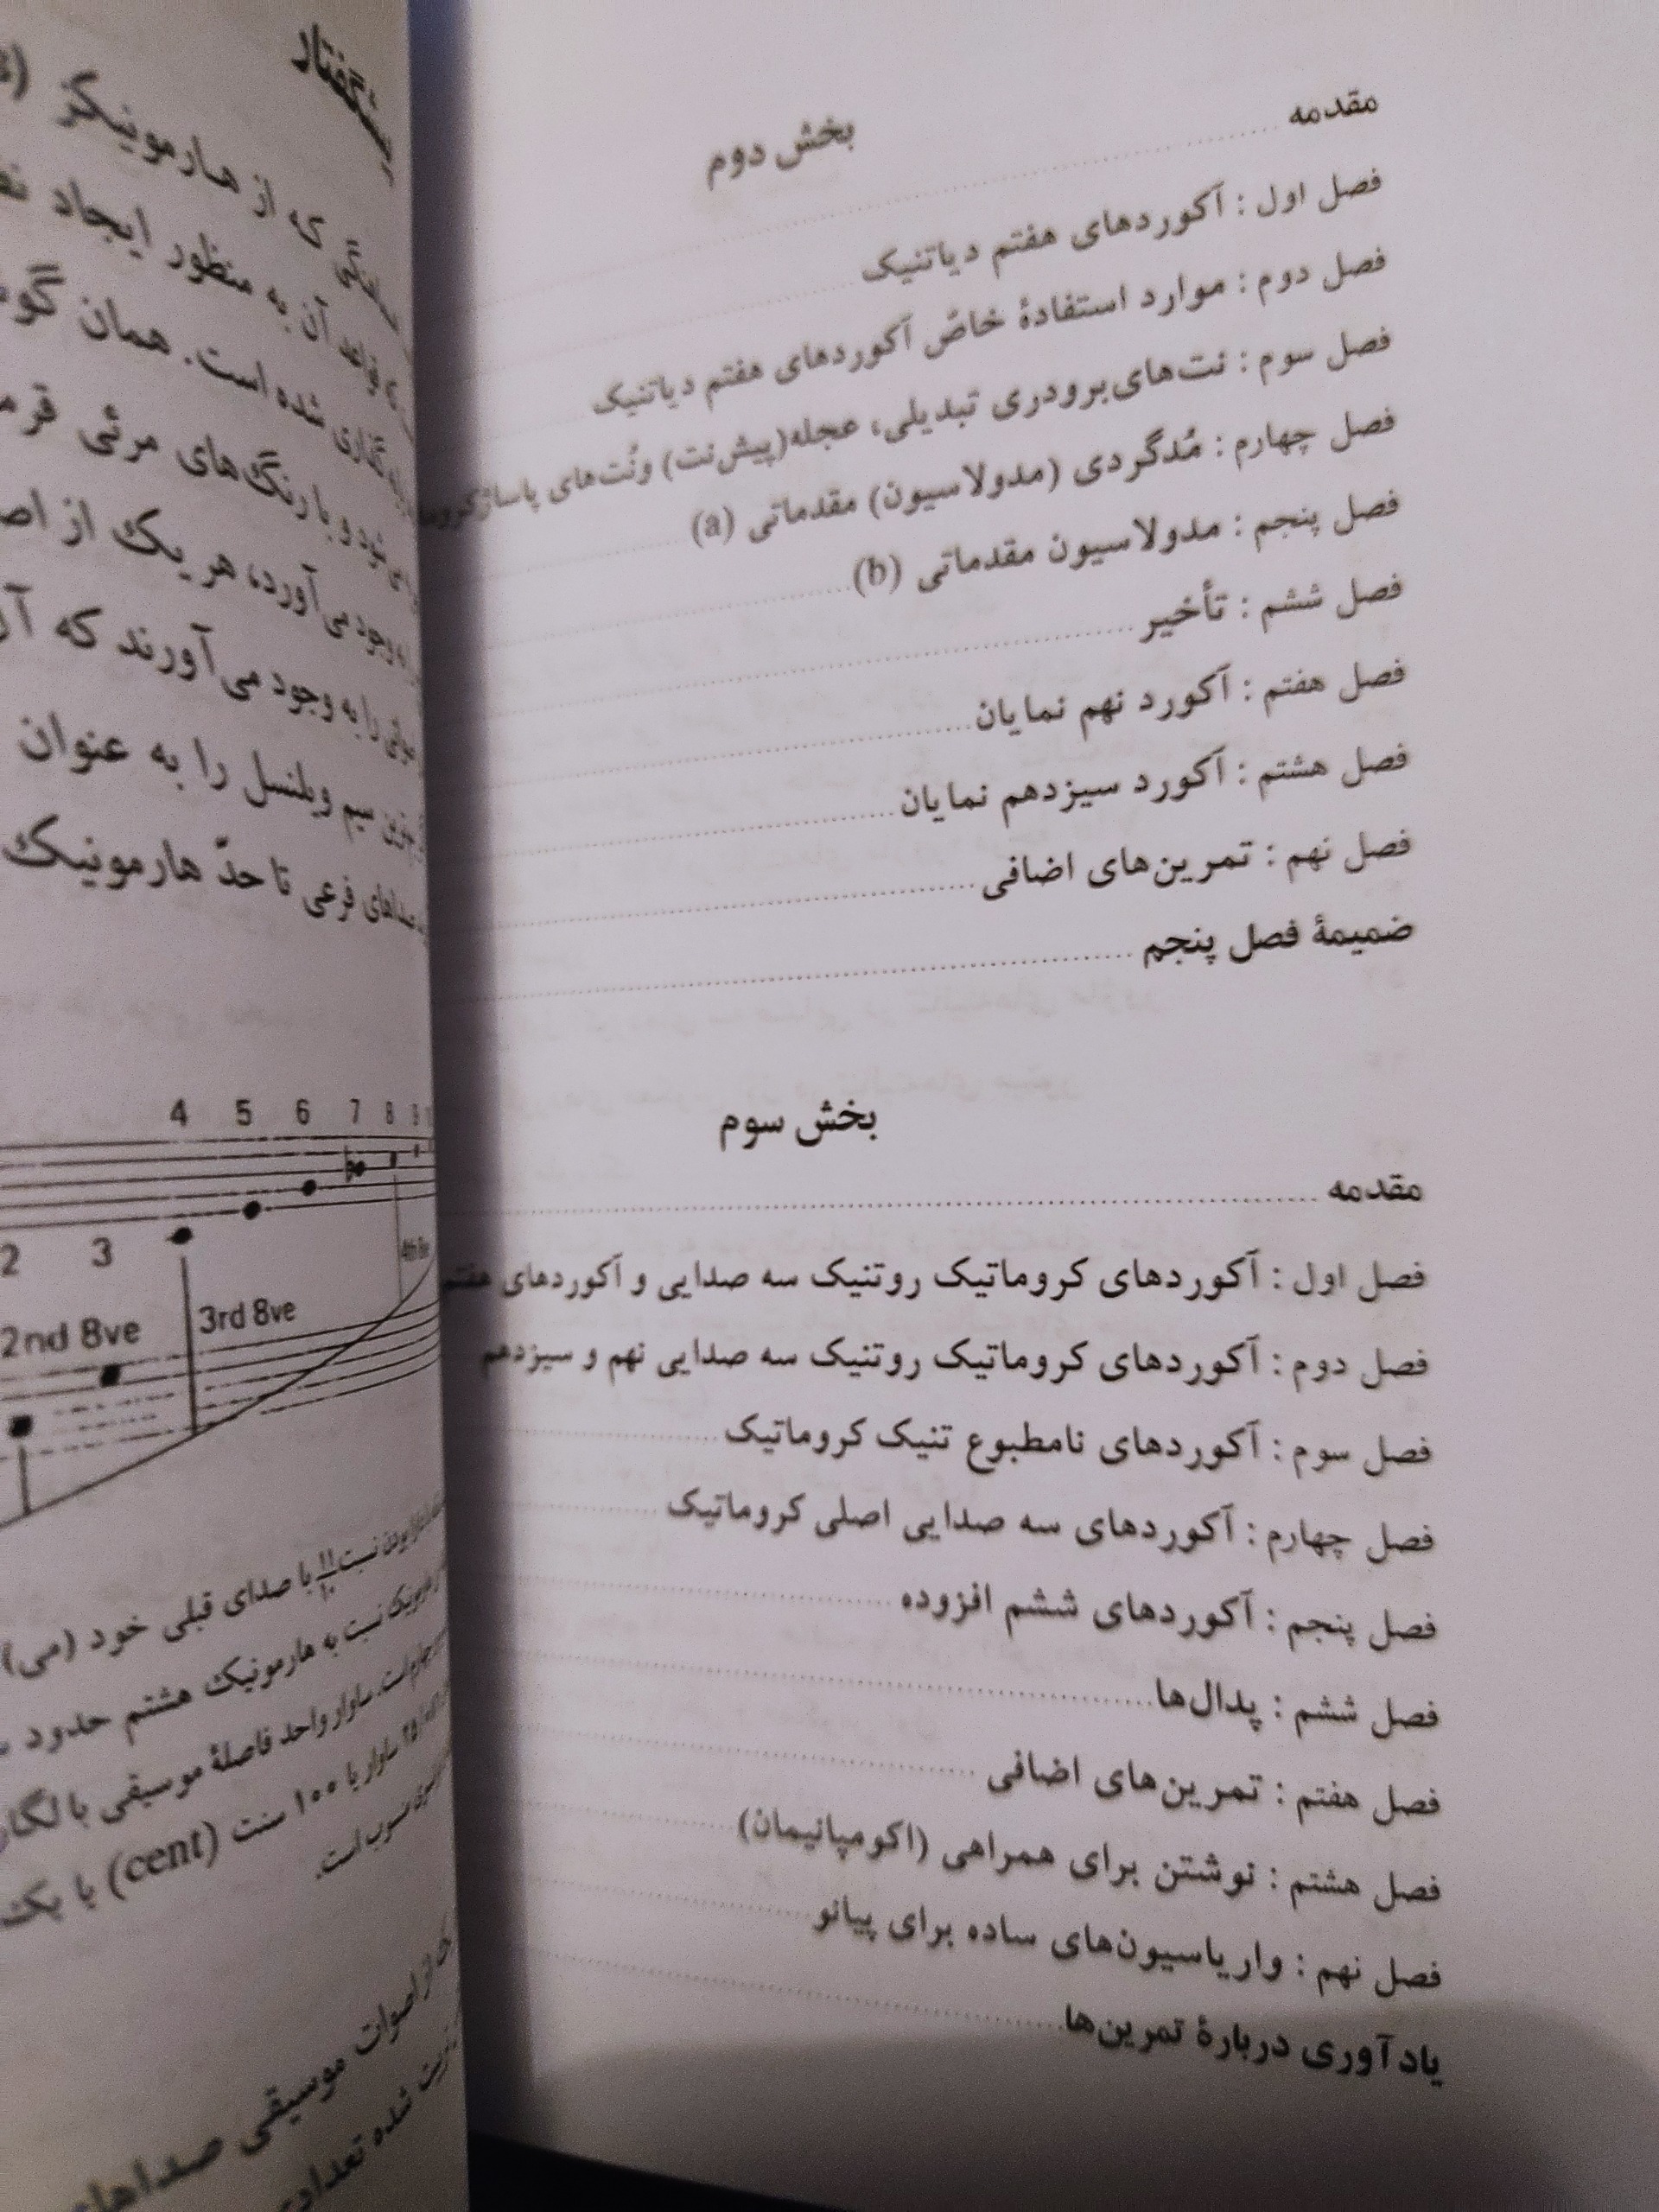 بخش دوم
مقدمه
فصل اول : آکوردهای هفتم دیاتنیک
فصل دوم : موارد استفادهٔ خاصّ آکوردهای هفتم دیاتنیک
فصل سوم : نت‌های برودری تبدیلی، عجله(پیش‌نت) ونُت‌های پاساژ
فصل چهارم : مُدگردی (مدولاسیون) مقدماتی (a)
فصل پنجم : مدولاسیون مقدماتی (b)
فصل ششم : تأخیر
فصل هفتم : آکورد نهم نمایان
فصل هشتم : آکورد سیزدهم نمایان
فصل نهم : تمرین‌های اضافی
ضمیمهٔ فصل پنجم
بخش سوم
مقدمه
فصل اول : آکوردهای کروماتیک روتنیک سه صدایی و آکوردهای هفتم
فصل دوم : آکوردهای کروماتیک روتنیک سه صدایی نهم و سیزدهم
فصل سوم : آکوردهای نامطبوع تنیک کروماتیک
فصل چهارم : آکوردهای سه صدایی اصلی کروماتیک
فصل پنجم : آکوردهای ششم افزوده
فصل ششم : پدال‌ها
فصل هفتم : تمرین‌های اضافی
فصل هشتم : نوشتن برای همراهی (اکومپانیمان)
فصل نهم : واریاسیون‌های ساده برای پیانو
یادآوری دربارهٔ تمرین‌ها
که از هارمونیکز
قواعد آن به منظور ایجاد
گذاری شده است. همان
شود و با رنگ‌های مرئی
به وجود می‌آورد، هر یک از
را به وجود می‌آورند که
سیم ویلنسل را به عنوان
صداهای فرعی تا حدّ هارمونیک
4 5 6 7 8 9
2 3
2nd 8ve 3rd 8ve 4th 8ve
بودن نسبت ۱۱/۱۰ با صدای قبلی خود (می)
هارمونیک نسبت به هارمونیک هشتم حدود
ساوار واحد فاصلهٔ موسیقی با
ساوار یا ۱۰۰ سنت (cent) با یک
منسوب است.
از اصوات موسیقی
شده